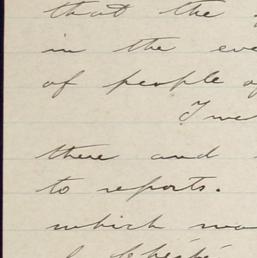 that the
in the eve
of people o
I we
there and
to reports.
which wa